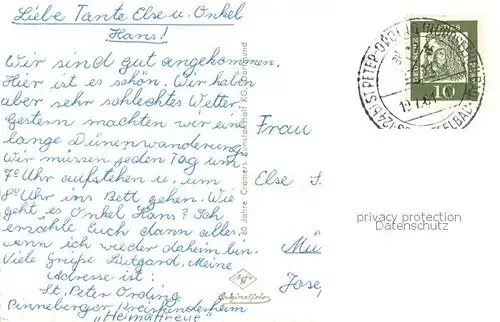 Liebe Tante Else u. Onkel
Hans!
Wir sind gut angekommen.
Hier ist es schön. Wir haben
aber sehr schlechtes Wetter.
Gestern machten wir eine
lange Dünenwanderung.
Wir müssen jeden Tag um
7º Uhr aufstehen u. um
8º Uhr ins Bett gehen. Wie
geht es Onkel Hans? Ich
erzähle Euch dann alles,
wenn ich wieder daheim bin.
Viele Grüße Lütgard. Meine
Adresse ist:
St. Peter Ording
Pinneberger Kreiskinderheim
"Heimattreue"
60 Jahre Cramers Kunstanstalt KG, Dortmund
Agfa
Originalfoto
Frau
Else S.
Mü
Jose
DEUTSCHE BUNDESPOST
10
(24b) ST PETER-ORDING
privacy protection
Datenschutz